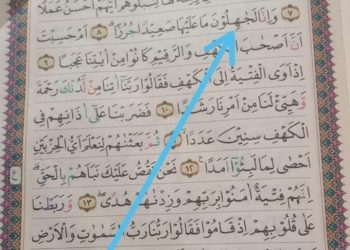 لِنَبْلُوَهُمْ اَيُّهُمْ اَحْسَنُ عَمَلًا
﴿٧﴾ وَاِنَّا لَجٰهِلُوْنَ مَا عَلَيْهَا صَعِيْدًا جُرُزًا ﴿٨﴾ اَمْ حَسِبْتَ
اَنَّ اَصْحٰبَ الْكَهْفِ وَالرَّقِيْمِ كَانُوْا مِنْ اٰيٰتِنَا عَجَبًا ﴿٩﴾
اِذْ اَوَى الْفِتْيَةُ اِلَى الْكَهْفِ فَقَالُوْا رَبَّنَآ اٰتِنَا مِنْ لَّدُنْكَ رَحْمَةً
وَّهَيِّئْ لَنَا مِنْ اَمْرِنَا رَشَدًا ﴿١٠﴾ فَضَرَبْنَا عَلٰٓى اٰذَانِهِمْ فِى
الْكَهْفِ سِنِيْنَ عَدَدًا ﴿١١﴾ ثُمَّ بَعَثْنٰهُمْ لِنَعْلَمَ اَيُّ الْحِزْبَيْنِ
اَحْصٰى لِمَا لَبِثُوْٓا اَمَدًا ﴿١٢﴾ نَحْنُ نَقُصُّ عَلَيْكَ نَبَاَهُمْ بِالْحَقِّ
اِنَّهُمْ فِتْيَةٌ اٰمَنُوْا بِرَبِّهِمْ وَزِدْنٰهُمْ هُدًى ﴿١٣﴾ وَّرَبَطْنَا
عَلٰى قُلُوْبِهِمْ اِذْ قَامُوْا فَقَالُوْا رَبُّنَا رَبُّ السَّمٰوٰتِ وَالْاَرْضِ